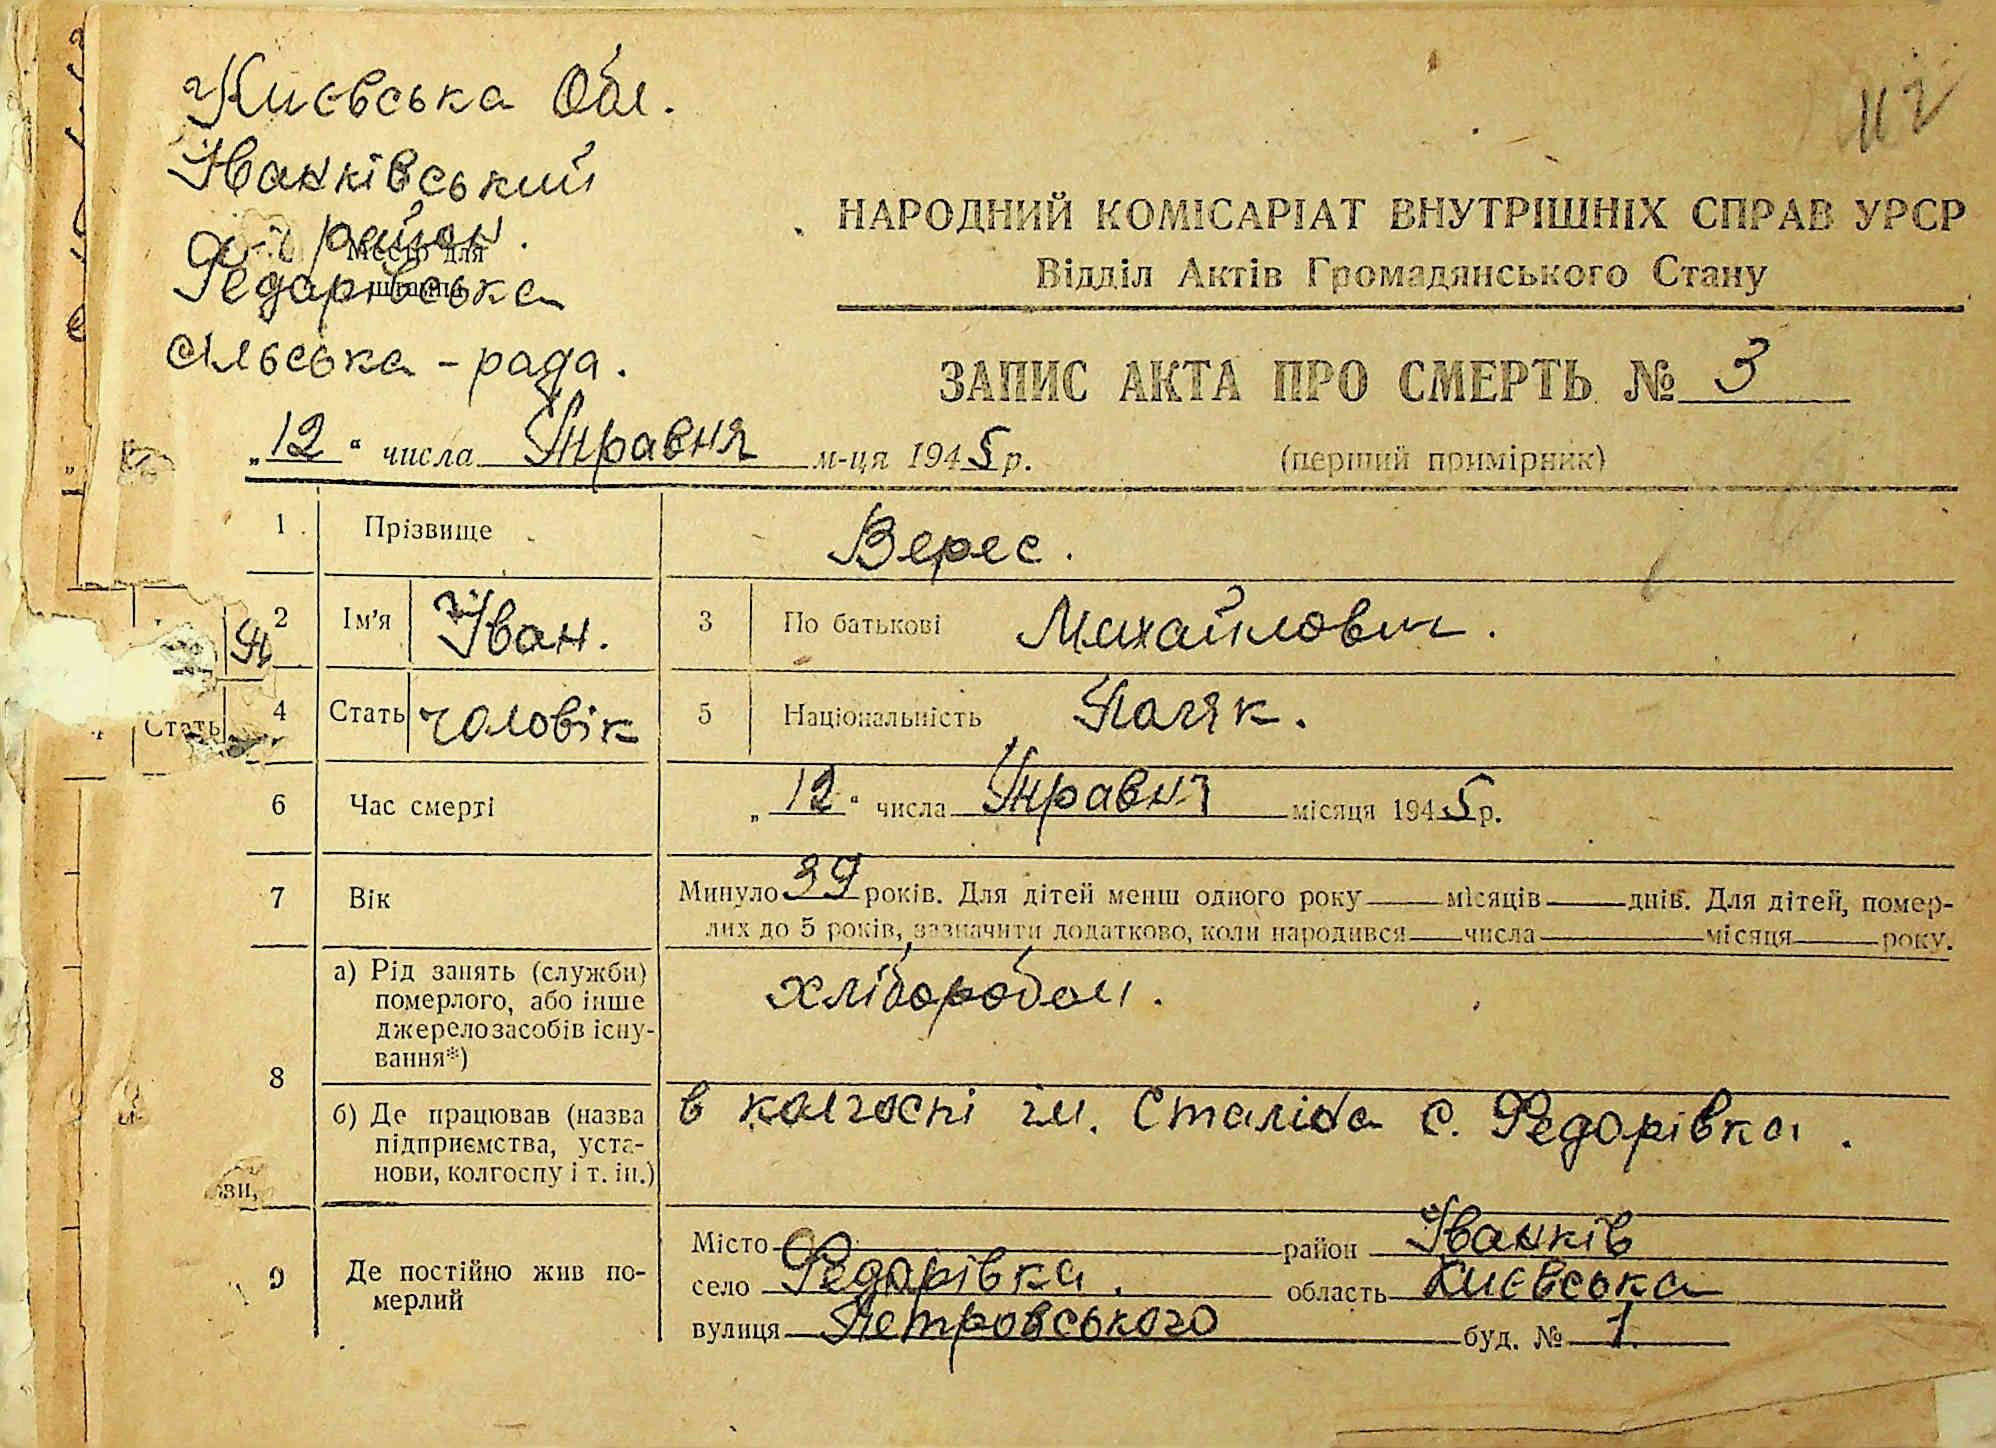 112
Києвська Обл.
Іванківський
район.
Місце для
штампа
Федорівська
сільська - рада.
НАРОДНИЙ КОМІСАРІАТ ВНУТРІШНІХ СПРАВ УРСР
Відділ Актів Громадянського Стану
ЗАПИС АКТА ПРО СМЕРТЬ № 3
„12" числа Травня м-ця 1945 р.
(перший примірник)
1 Прізвище Верес.
2 Ім'я Іван. 3 По батькові Михайлович.
4 Стать чоловік 5 Національність Поляк.
Стать
6 Час смерті „12" числа Травня місяця 1945 р.
7 Вік Минуло 39 років. Для дітей менш одного року місяців днів. Для дітей, помер-
лих до 5 років, зазначити додатково, коли народився числа місяця року.
8 а) Рід занять (служби)
померлого, або інше
джерело засобів існу-
вання*)
хлібороботи.
б) Де працював (назва
підприємства, уста-
нови, колгоспу і т. ін.)
в колгоспі ім. Сталіна с. Федорівка.
ви,
9 Де постійно жив по-
мерлий
Місто район Іванків
село Федорівка. область Києвська
вулиця Петровського буд. № 1.